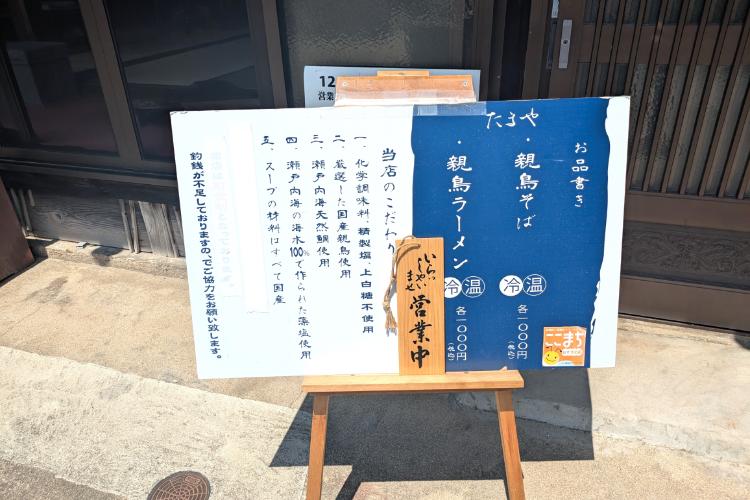 12
営業
お品書き
たまや
・親鳥そば
冷 温
各一〇〇〇円
(税込)
・親鳥ラーメン
冷 温
各一〇〇〇円
(税込)
ここまち
いらっしゃいませ
営業中
当店のこだわり
一、化学調味料、精製塩、上白糖不使用
二、厳選した国産親鳥使用
三、瀬戸内海天然鯛使用
四、瀬戸内海の海水100%で作られた藻塩使用
五、スープの材料はすべて国産
釣銭が不足しておりますの、でご協力をお願い致します。